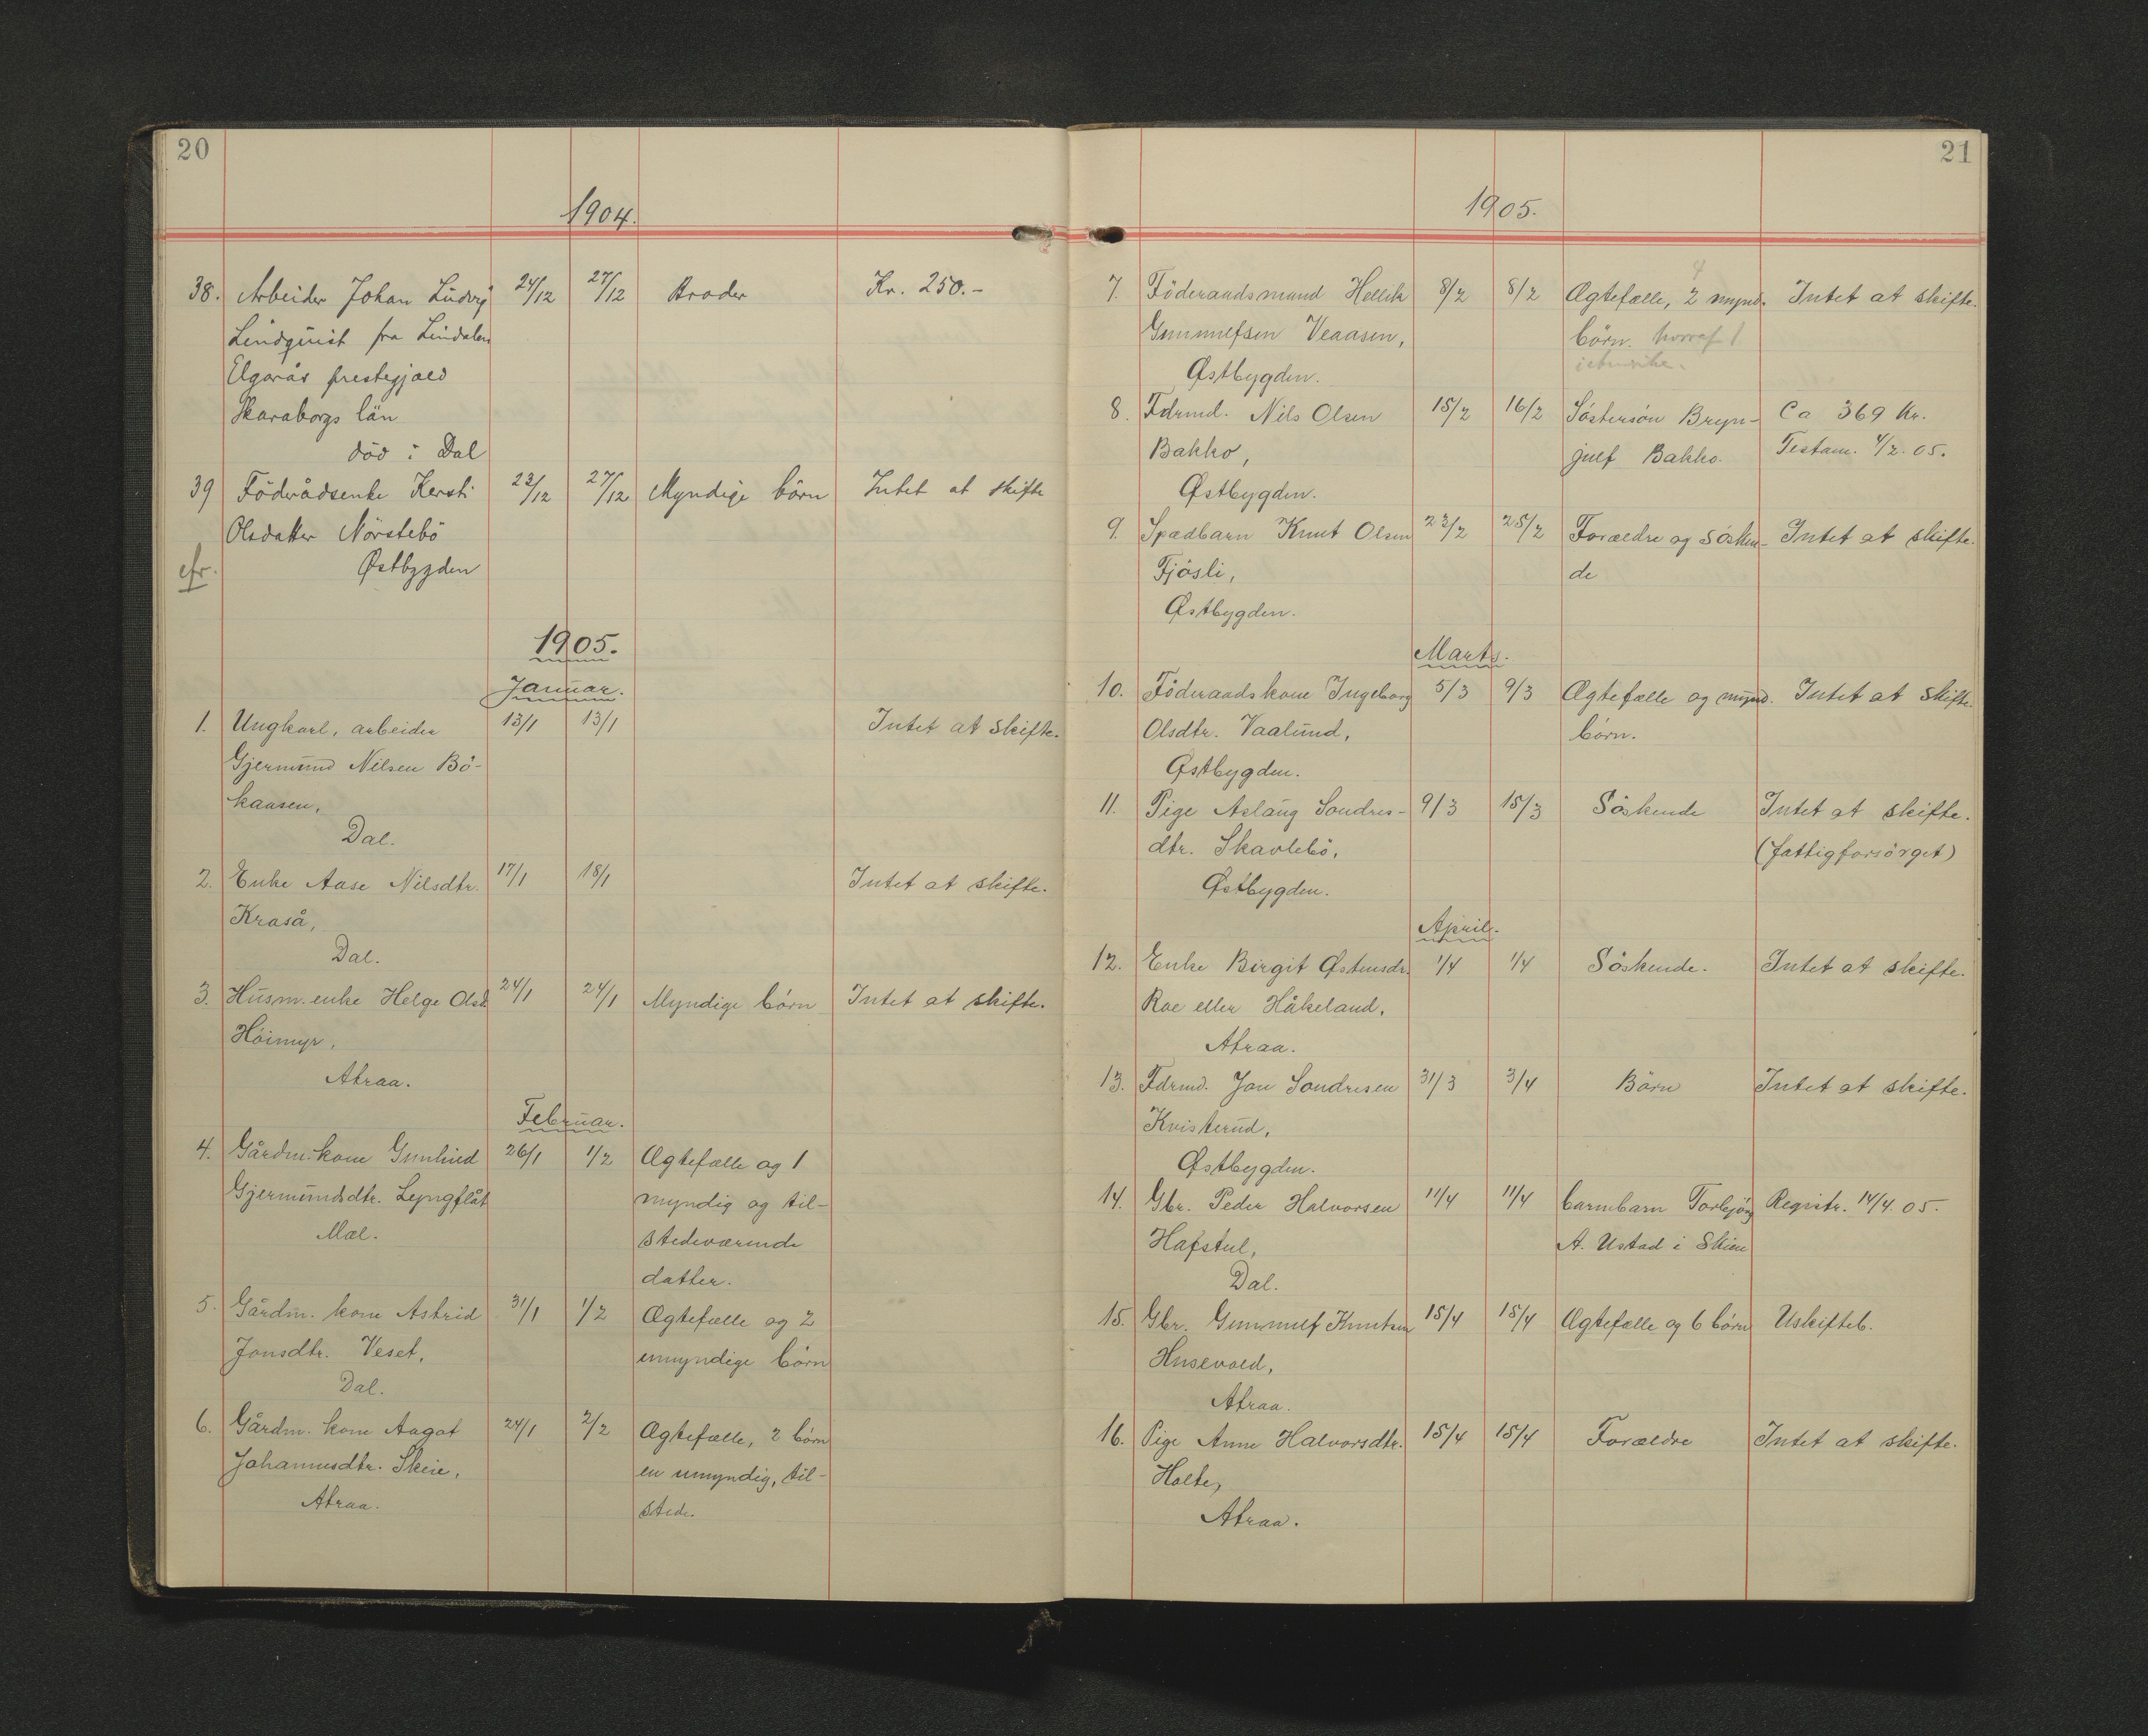 20
1904.
38. Arbeider Johan Ludvig 24/12 27/12 Broder Kr. 250.-
Lindquist fra Lindalen
Elgarås prestegjæld
Skaraborgs län
död i Dal
39 Föderådsenke Kersti 23/12 27/12 Myndige börn Intet at skifte
Olsdatter Nörstebö
cfr. Østbygden
1905.
Januar.
1. Ungkarl, arbeider 13/1 13/1 Intet at skifte.
Gjermund Nilsen Bö-
kaasen,
Dal.
2. Enke Aase Nilsdtr. 17/1 18/1 Intet at skifte.
Kraså,
Dal.
3. Husm. enke Helge Olsd. 24/1 24/1 Myndige börn Intet at skifte.
Höimyr,
Atraa.
Februar.
4. Gårdm. kone Gunhild 26/1 1/2 Ægtefælle og 1
Gjermundsdtr. Lyngflåt myndig og til-
Mæl. stedeværende
datter.
5. Gårdm. kone Astrid 31/1 1/2 Ægtefælle og 2
Jonsdtr. Veset, umyndige börn
Dal.
6. Gårdm. kone Aagot 24/1 2/2 Ægtefælle, 2 börn
Johannesdtr. Skeie, en umyndig, til-
Atraa. stede.
21
1905.
4
7. Föderaadsmand Hellik 8/2 8/2 Ægtefælle, 2 mynd. Intet at skifte.
Gunnulfsen Veaasen, börn. hvoraf 1
Østbygden.
8. Fdrmd. Nils Olsen 15/2 16/2 Söstersön Bryn- Ca 369 Kr.
Bakko, julf Bakko. Testam. 4/2. 05.
Østbygden.
9. Spædbarn Knut Olsen 23/2 25/2 Forældre og sösken- Intet at skifte.
Fjösli, de
Østbygden.
Marts.
10. Föderaadskone Ingeborg 5/3 9/3 Ægtefælle og mynd. Intet at skifte.
Olsdtr. Vaalund, börn.
Østbygden.
11. Pige Aslaug Sondres- 9/3 15/3 Söskende Intet at skifte.
dtr. Skavlebö, (fattigforsörget)
Østbygden.
April.
12. Enke Birgit Østensdr. 1/4 1/4 Söskende. Intet at skifte.
Roe eller Håkeland,
Atraa.
13. Fdrmd. Jon Sondresen 31/3 3/4 Börn Intet at skifte.
Kvisterud,
Østbygden.
14. Gbr. Peder Halvorsen 11/4 11/4 barnebarn Torbjörg Registr. 14/4. 05.
Hafstul, A. Ustad i Skien
Dal.
15. Gbr. Gunnulf Knutsen 15/4 15/4 Ægtefælle og 6 börn Uskifteb.
Husevold,
Atraa.
16. Pige Anne Halvorsdtr. 15/4 15/4 Forældre Intet at skifte.
Holte,
Atraa.